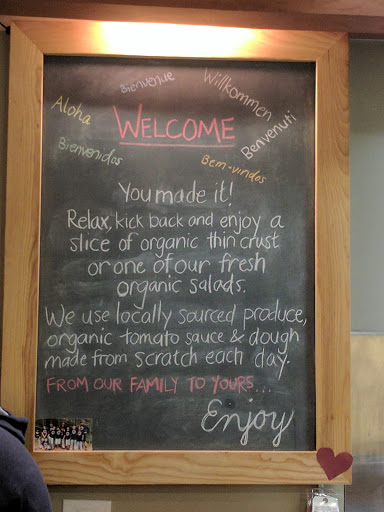 Bienvenue
Willkommen
Aloha
WELCOME
Benvenuti
Bienvenidos
Bem-vindos
You made it!
Relax, kick back and enjoy a
slice of organic thin crust
or one of our fresh
organic salads.
We use locally sourced produce,
organic tomato sauce & dough
made from scratch each day.
FROM OUR FAMILY TO YOURS...
Enjoy